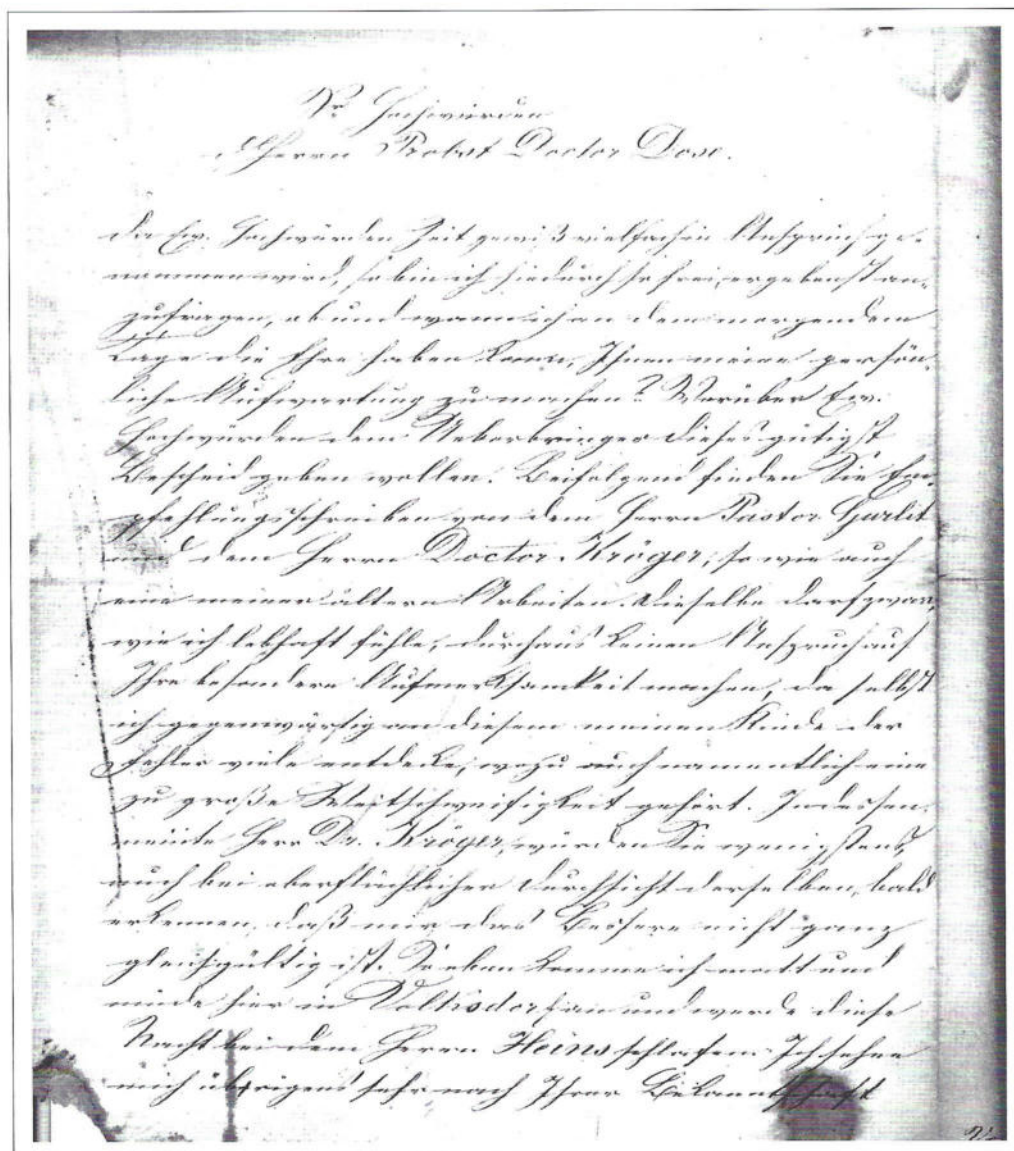 Sr Hochwürden
Herrn Probst Doctor Dose.
Da Ew. Hochwürden Zeit gewiß vielfach in Anspruch ge-
nommen wird, so bin ich hiedurch so frei, ergebenst an-
zufragen, ob und wann ich an dem morgendem
Tage die Ehre haben kann, Ihnen meine persön-
liche Aufwartung zu machen? Worüber Ew.
Hochwürden dem Ueberbringer dieses gütigst
Bescheid geben wollen. Beifolgend finden Sie Em-
pfehlungsschreiben von dem Herrn Pastor Gurlit
und dem Herrn Doctor Kröger, so wie auch
eine meiner ältern Arbeiten. Dieselbe darf zwar,
wie ich lebhaft fühle, durchaus keinen Anspruch auf
Ihre besondere Aufmerksamkeit machen, da selbst
ich gegenwärtig an diesem meinen Kinde der
Fehler viele entdecke, wozu auch namentlich eine
zu große Weitschweifigkeit gehört. Indessen
meinte Herr Dr. Kröger, würden Sie wenigstens,
auch bei oberflächlicher Durchsicht derselben, bald
erkennen, daß mir das Bessere nicht ganz
gleichgültig ist. So eben komme ich matt und
müde hier in Volksdorf an und werde diese
Nacht bei dem Herrn Heins schlafen. Ich sehne
mich übrigens sehr nach Ihrer Bekanntschaft